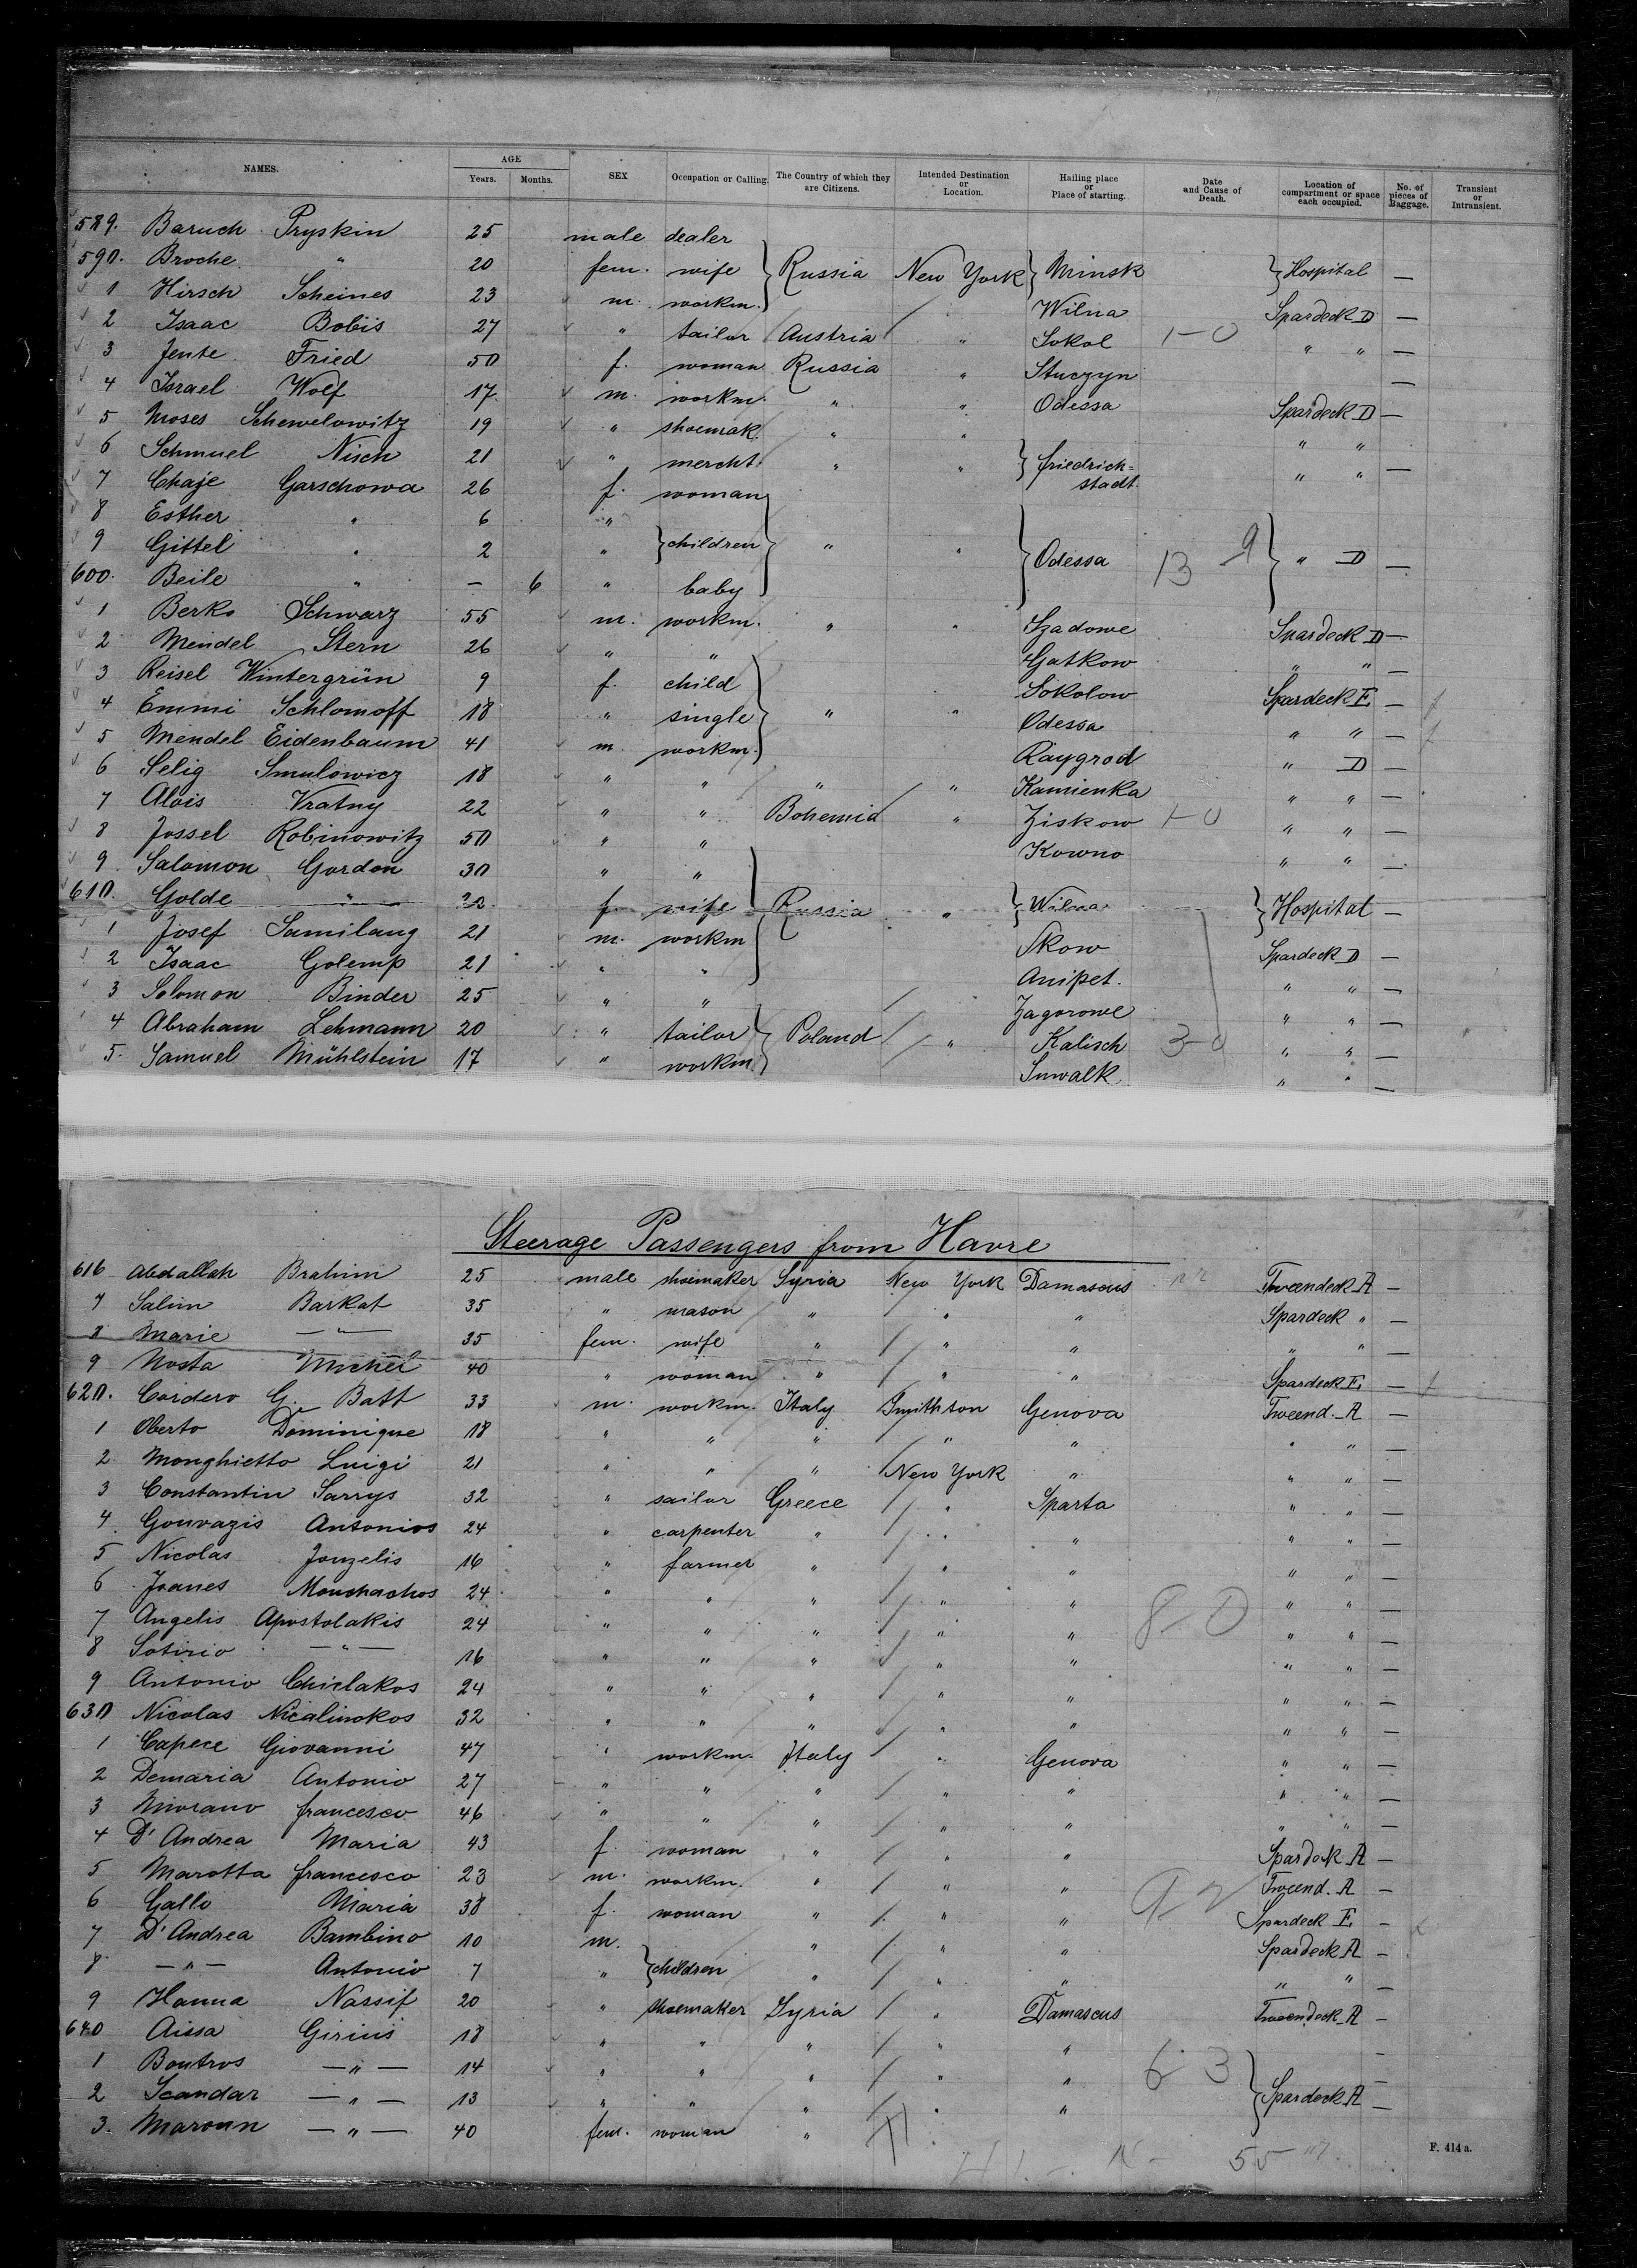 NAMES. AGE Years. Months. SEX Occupation or Calling. The Country of which they are Citizens. Intended Destination or Location. Hailing place or Place of starting. Date and Cause of Death. Location of compartment or space each occupied. No. of pieces of Baggage. Transient or Intransient.
589. Baruch Pryskin 25 male dealer
590. Broche " 20 fem. wife } Russia New York } Minsk } Hospital —
1 Hirsch Scheines 23 m. workm. Wilna Spardeck D —
2 Isaac Bobis 27 " tailor Austria " Sokol 1-0 " " —
3 Jente Fried 50 f. woman Russia " Stuczyn —
4 Israel Wolf 17 m. workm. " " Odessa Spardeck D —
5 Moses Schewelowitz 19 " shoemak. " " " "
6 Schmuel Nisch 21 " mercht. " " } Friedrich=stadt. " " —
7 Chaje Garschowa 26 f. woman
8 Esther " 6 "
9 Gittel " 2 " } children } " " } Odessa 13-9 } " D —
600. Beile " — 6 " baby
1 Berko Schwarz 55 m. workm. " " Szadowe Spardeck D —
2 Mendel Stern 26 " " Gatkow " " —
3 Reisel Wintergrün 9 f. child Sokolow Spardeck E —
4 Emmi Schlomoff 18 " single } " " Odessa " " —
5 Mendel Eidenbaum 41 m. workm. Raygrod " D —
6 Selig Smulowicz 18 " " " " Kamienka " " —
7 Alois Vratny 22 " " Bohemia " Ziskow 1-0 " " —
8 Jossel Robinowitz 50 " " Kowno " " —
9 Salomon Gordon 30 " "
610. Golde " 22 f. wife } Russia " } Wilna } Hospital —
1 Josef Samilang 21 m. workm Skow Spardeck D —
2 Isaac Golemp 21 " " Anipet. " " —
3 Solomon Binder 25 " " Zagorowe " " —
4 Abraham Lehmann 20 " tailor } Poland " Kalisch 3-0 " " —
5. Samuel Mühlstein 17 " workm. Suwalk " " —
Steerage Passengers from Havre
616 Abdallah Brahim 25 male shoemaker Syria New York Damascus Tweendeck A —
7 Salim Barkat 35 " mason " " " Spardeck " —
8 Marie — " — 35 fem. wife " " " " " —
9 Nosta Michel 40 " woman " " " Spardeck E. —
620. Cordero G. Batt 33 m. workm. Italy Smithton Genova Tweend. A —
1 Oberto Dominique 18 " " " " " " " —
2 Monghietto Luigi 21 " " " New York " " " —
3 Constantin Sarrys 32 " sailor Greece " Sparta " " —
4 Gouvazis Antonios 24 " carpenter " " " " " —
5 Nicolas Jouzelis 16 " farmer " " " " " —
6 Joanes Mouchachos 24 " " " " " " " —
7 Angelis Apostolakis 24 " " " " " 8-0 " " —
8 Sotirio — " — 16 " " " " " " " —
9 Antonio Chirlakos 24 " " " " " " " —
630 Nicolas Nicalinokos 32 " " " " " " " —
1 Capece Giovanni 47 " workm. Italy " Genova " " —
2 Demaria Antonio 27 " " " " " " " —
3 Morano Francesco 46 " " " " " " " —
4 D'Andrea Maria 43 f. woman " " " Spardeck A —
5 Marotta Francesco 23 m. workm. " " " Tweend. A —
6 Gallo Maria 38 f. woman " " " 9-2 Spardeck E —
7 D'Andrea Bambino 10 m. " " " Spardeck A —
8 — " — Antonio 7 " } children " " " " " —
9 Hanna Nassif 20 " shoemaker Syria " Damascus Tweendeck A —
640 Aissa Girius 18 " " " " " —
1 Boutros — " — 14 " " " " " 6-3 —
2 Scandar — " — 13 " " " " " } Spardeck A —
3. Maroun — " — 40 fem. woman "
55
F. 414 a.